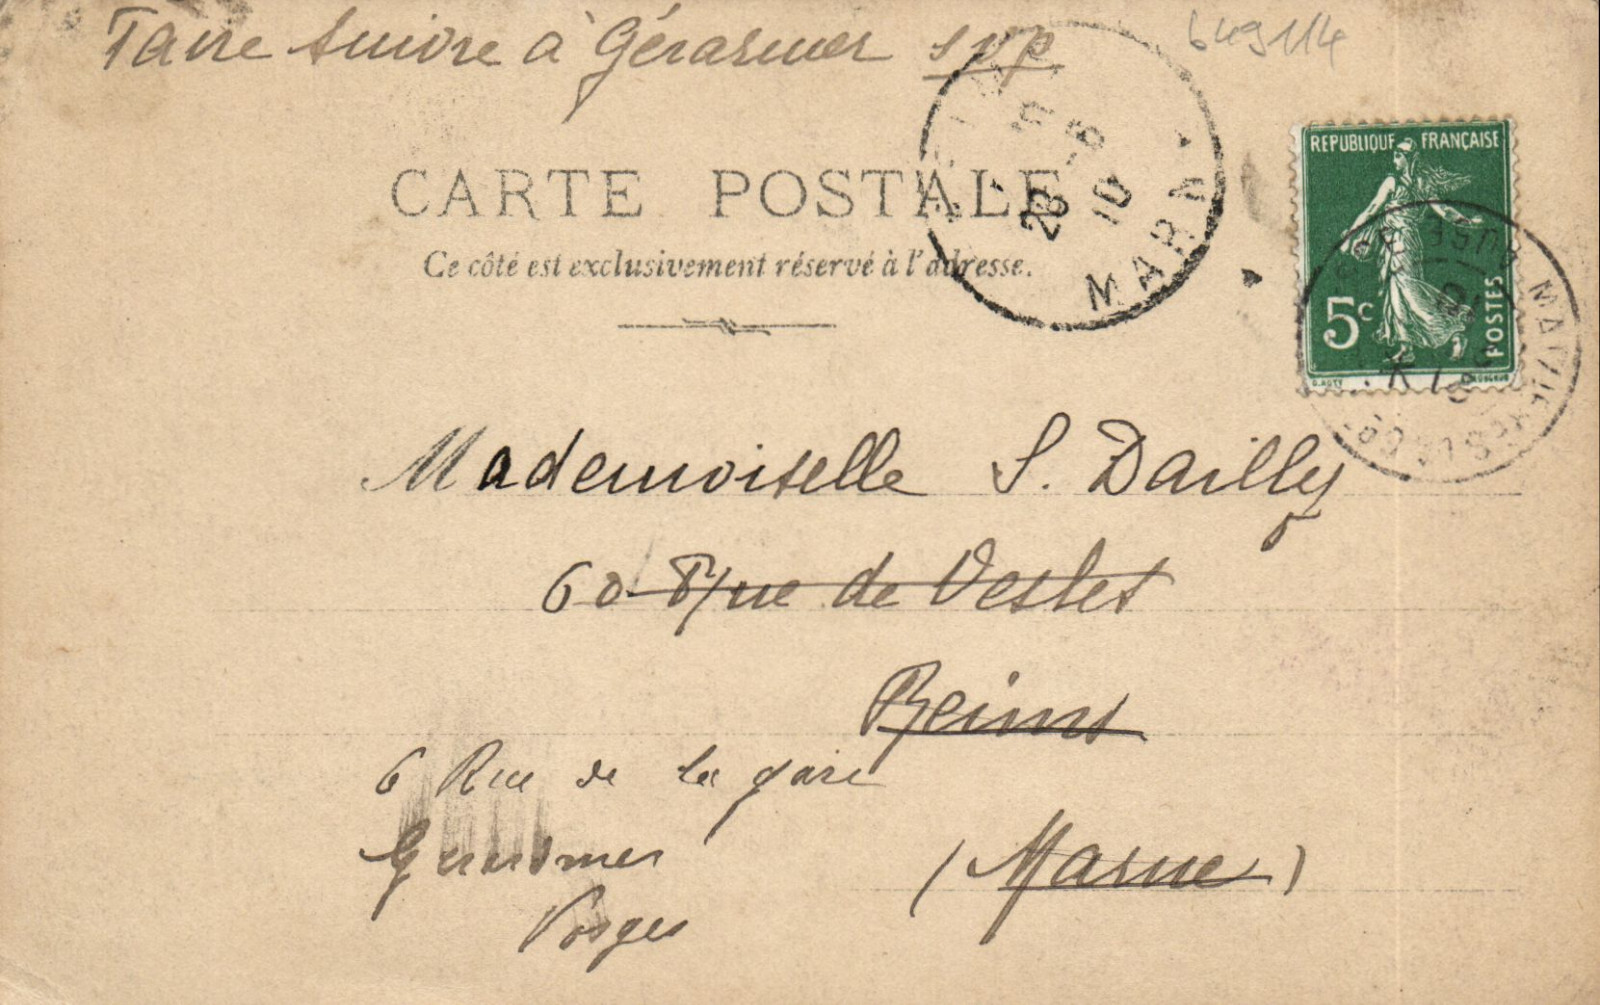 Faire Suivre à Gérarmer svp
649114
CARTE POSTALE
Ce côté est exclusivement réservé à l'adresse.
REPUBLIQUE FRANÇAISE
5c
POSTES
28 -5
10
MARNE
Mademoiselle S. Dailly
60 Rue de Vesles
Reims
(Marne)
6 Rue de la gare
Gerarmer
Vosges